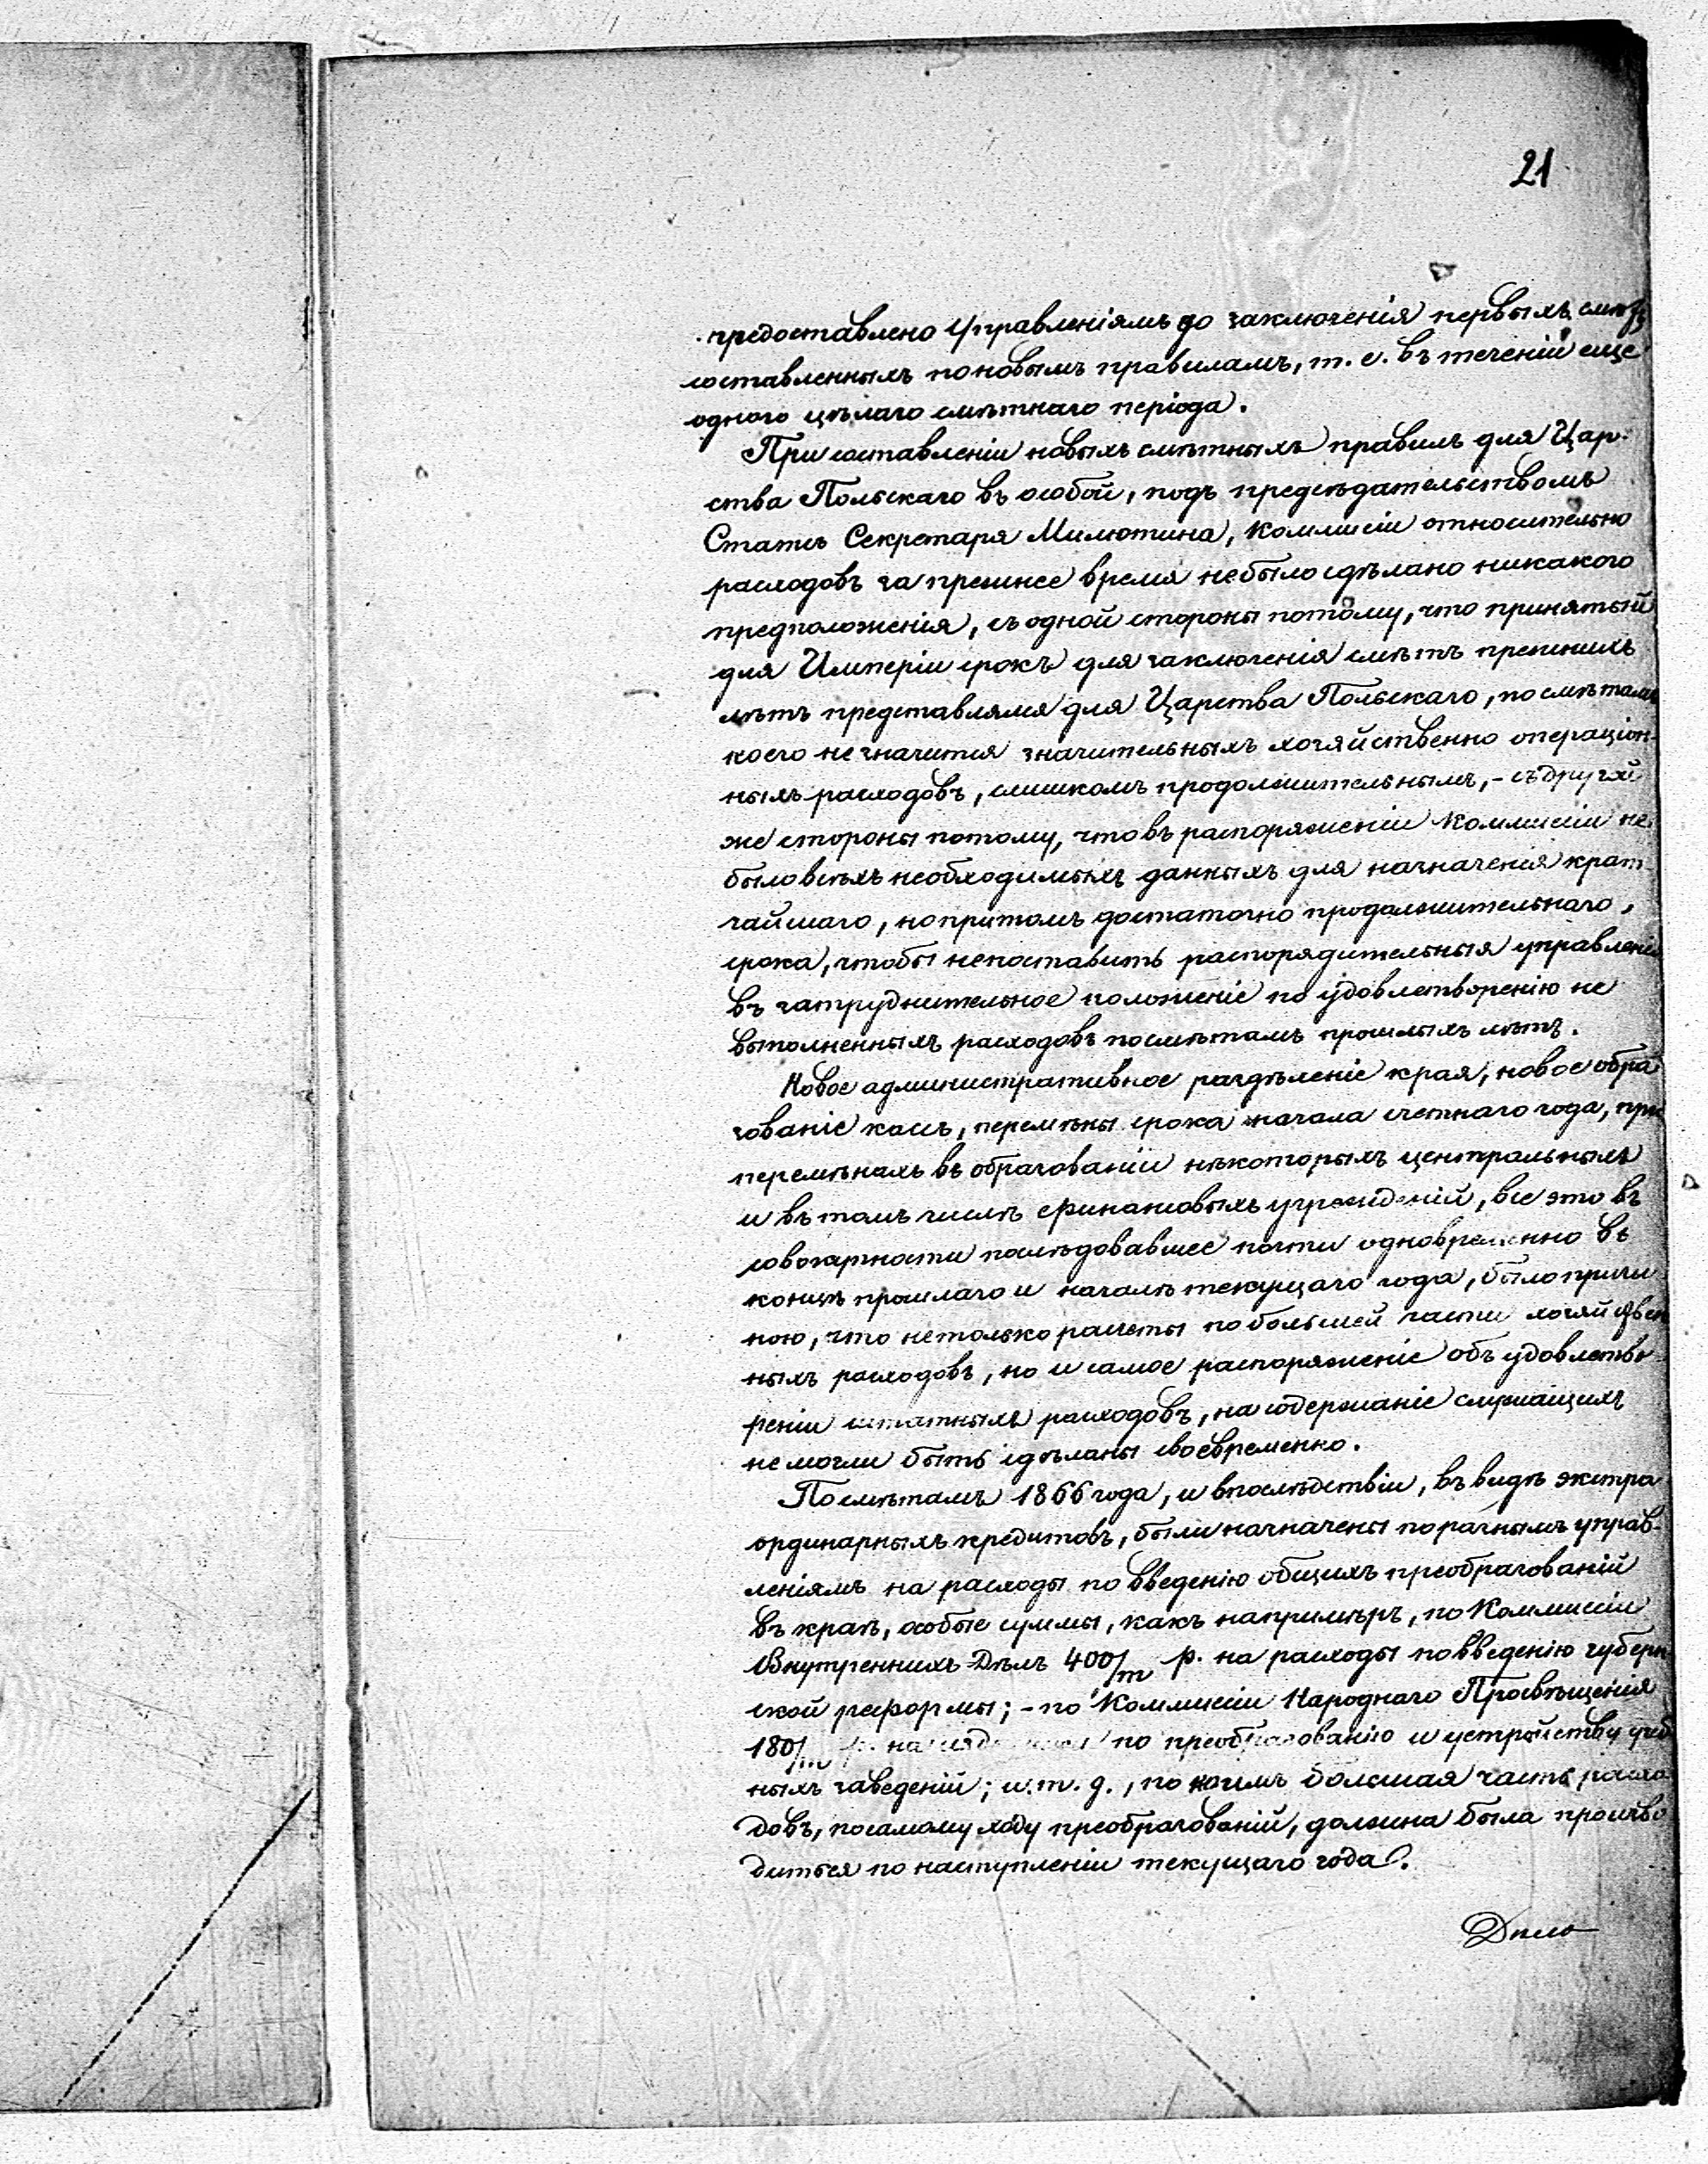 21
предоставлено Управленіямъ до заключенія первыхъ смѣтъ
составленныхъ по новымъ правиламъ, т. е. въ теченіи еще
одного цѣлаго смѣтнаго періода.
При составленіи новыхъ смѣтныхъ правилъ для Цар-
ства Польскаго въ особой, подъ предсѣдательствомъ
Статсъ Секретаря Милютина, Коммисіи относительно
расходовъ за прежнее время не было сдѣлано никакого
предположенія, съ одной стороны потому, что принятый
для Имперіи срокъ для заключенія смѣтъ прежнихъ
лѣтъ представлялся для Царства Польскаго, по смѣтамъ
коего не значится значительныхъ хозяйственно операціон-
ныхъ расходовъ, слишкомъ продолжительнымъ, - съ другой
же стороны потому, что въ распоряженіи Коммисіи не
было всѣхъ необходимыхъ данныхъ для назначенія крат-
чайшаго, но притомъ достаточно продолжительнаго,
срока, чтобы не поставить распорядительныя управленія
въ затруднительное положеніе по удовлетворенію не
выполненныхъ расходовъ по смѣтамъ прошлыхъ лѣтъ.
Новое административное раздѣленіе края, новое обра
зованіе кассъ, перемѣны срока начала счетнаго года, при
перемѣнахъ въ образованіи нѣкоторыхъ центральныхъ
и въ томъ числѣ финансовыхъ учрежденій, все это въ
совокупности послѣдовавшее почти одновременно въ
концѣ прошлаго и началѣ текущаго года, было причи
ною, что не только расчеты по большей части хозяйствен
ныхъ расходовъ, но и самое распоряженіе объ удовлетво-
реніи штатныхъ расходовъ, на содержаніе служащихъ
не могли быть сдѣланы своевременно.
По смѣтамъ 1866 года, и впослѣдствіи, въ видѣ экстра
ординарныхъ кредитовъ, были назначены по разнымъ управ-
леніямъ на расходы по введенію общихъ преобразованій
въ краѣ, особые суммы, какъ напримѣръ, по Коммисіи
Внутреннихъ Дѣлъ 400/т р. на расходы по введенію губерн
ской реформы; - по Коммисіи Народнаго Просвѣщенія
180/т р. на по преобразованію и устройству учеб
ныхъ заведеній; и. т. д., по коимъ большая часть расхо
довъ, по самому ходу преобразованій, должна была произво
диться по наступленіи текущаго года.
Дѣло